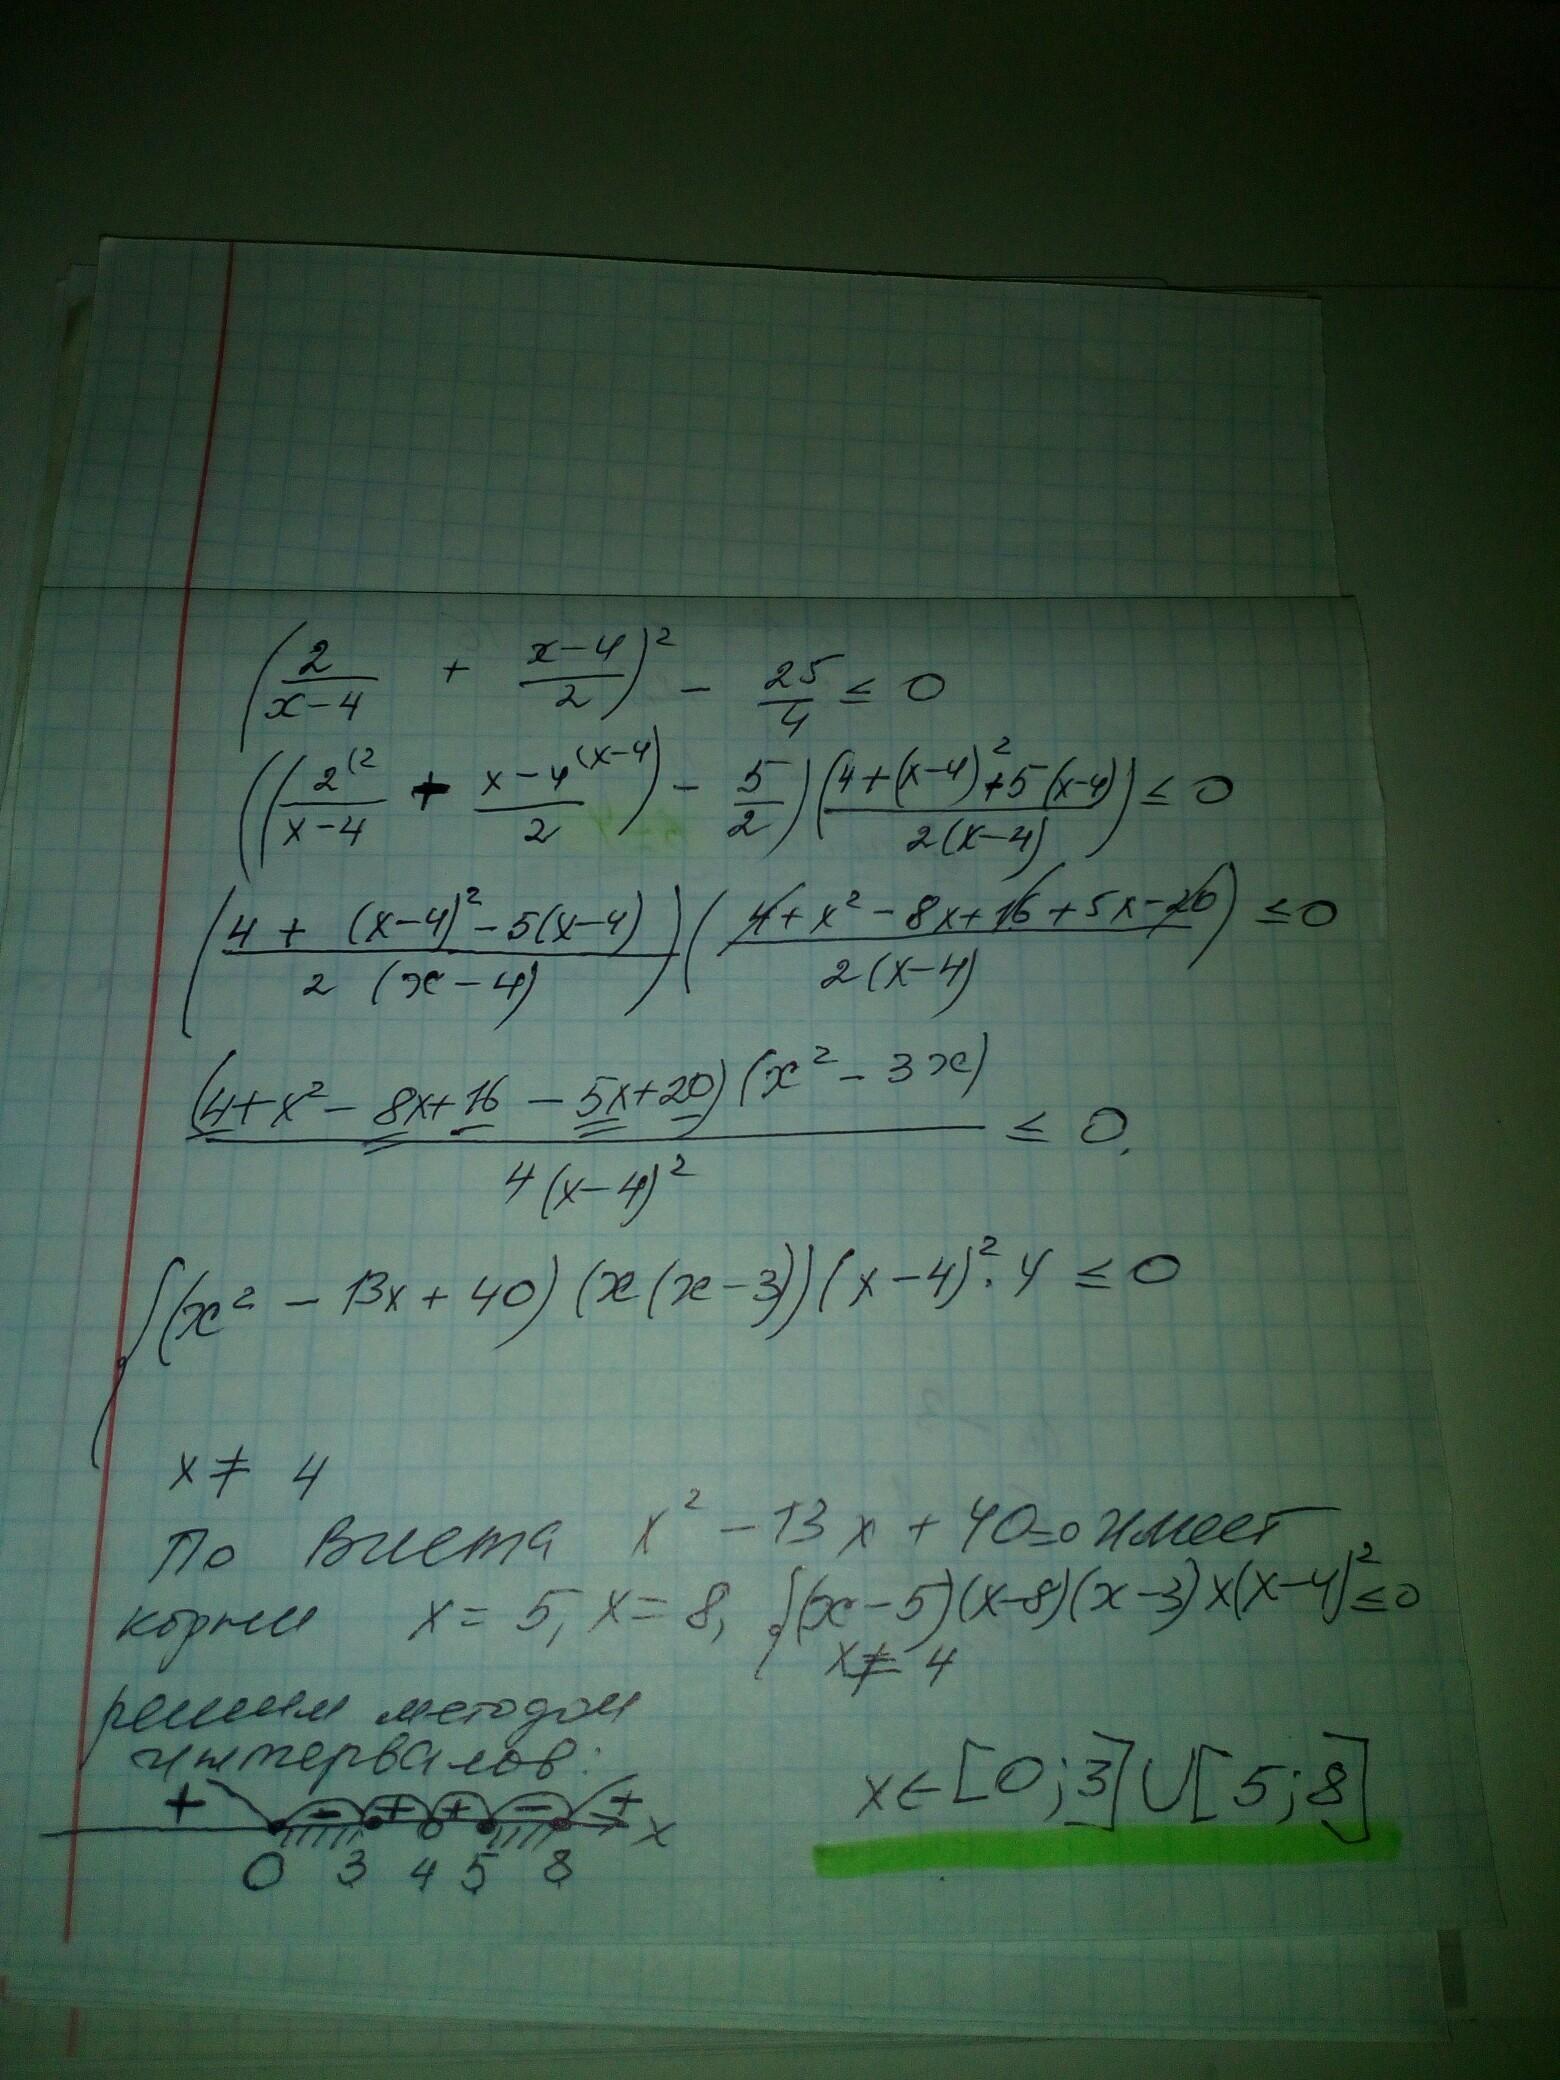 (2/(x-4) + (x-4)/2)² - 25/4 ≤ 0
((2⁽²/(x-4) + x-4⁽ˣ⁻⁴⁾/2) - 5/2)((4+(x-4)²+5(x-4))/(2(x-4))) ≤ 0
((4 + (x-4)² - 5(x-4))/(2(x-4)))((4+x²-8x+16+5x-20)/(2(x-4))) ≤ 0
((4+x²-8x+16-5x+20)(x²-3x))/(4(x-4)²) ≤ 0.
{(x²-13x+40)(x(x-3))(x-4)²·4 ≤ 0
x ≠ 4
По Виета x²-13x+40=0 имеет
корни x=5, x=8, {(x-5)(x-8)(x-3)x(x-4)² ≤ 0
x ≠ 4
решим методом
интервалов:
+ - + + - + x
0 3 4 5 8
x∈[0;3]∪[5;8]